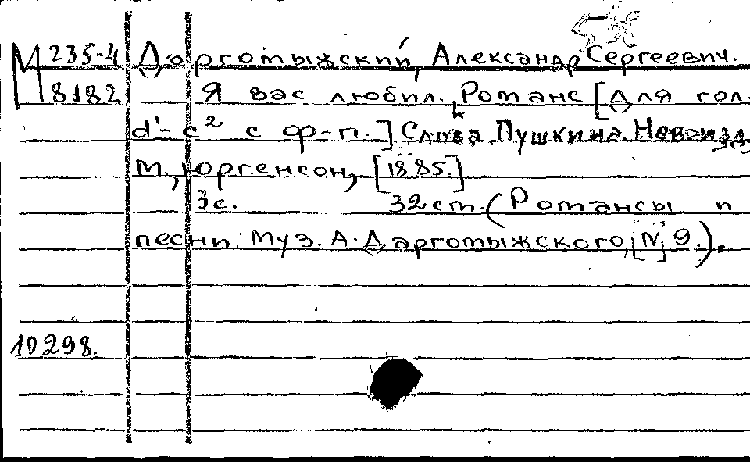 М 235-4 Даргомыжский, Александр Сергеевич.
8182 Я вас любил. Романс [для гол.
d¹-c² с ф-п.] Слова Пушкина. Новоизд
М., Юргенсон, [1885.]
3с. 32 ст. (Романсы и
песни муз. А. Даргомыжского, [N 9.).
10298.